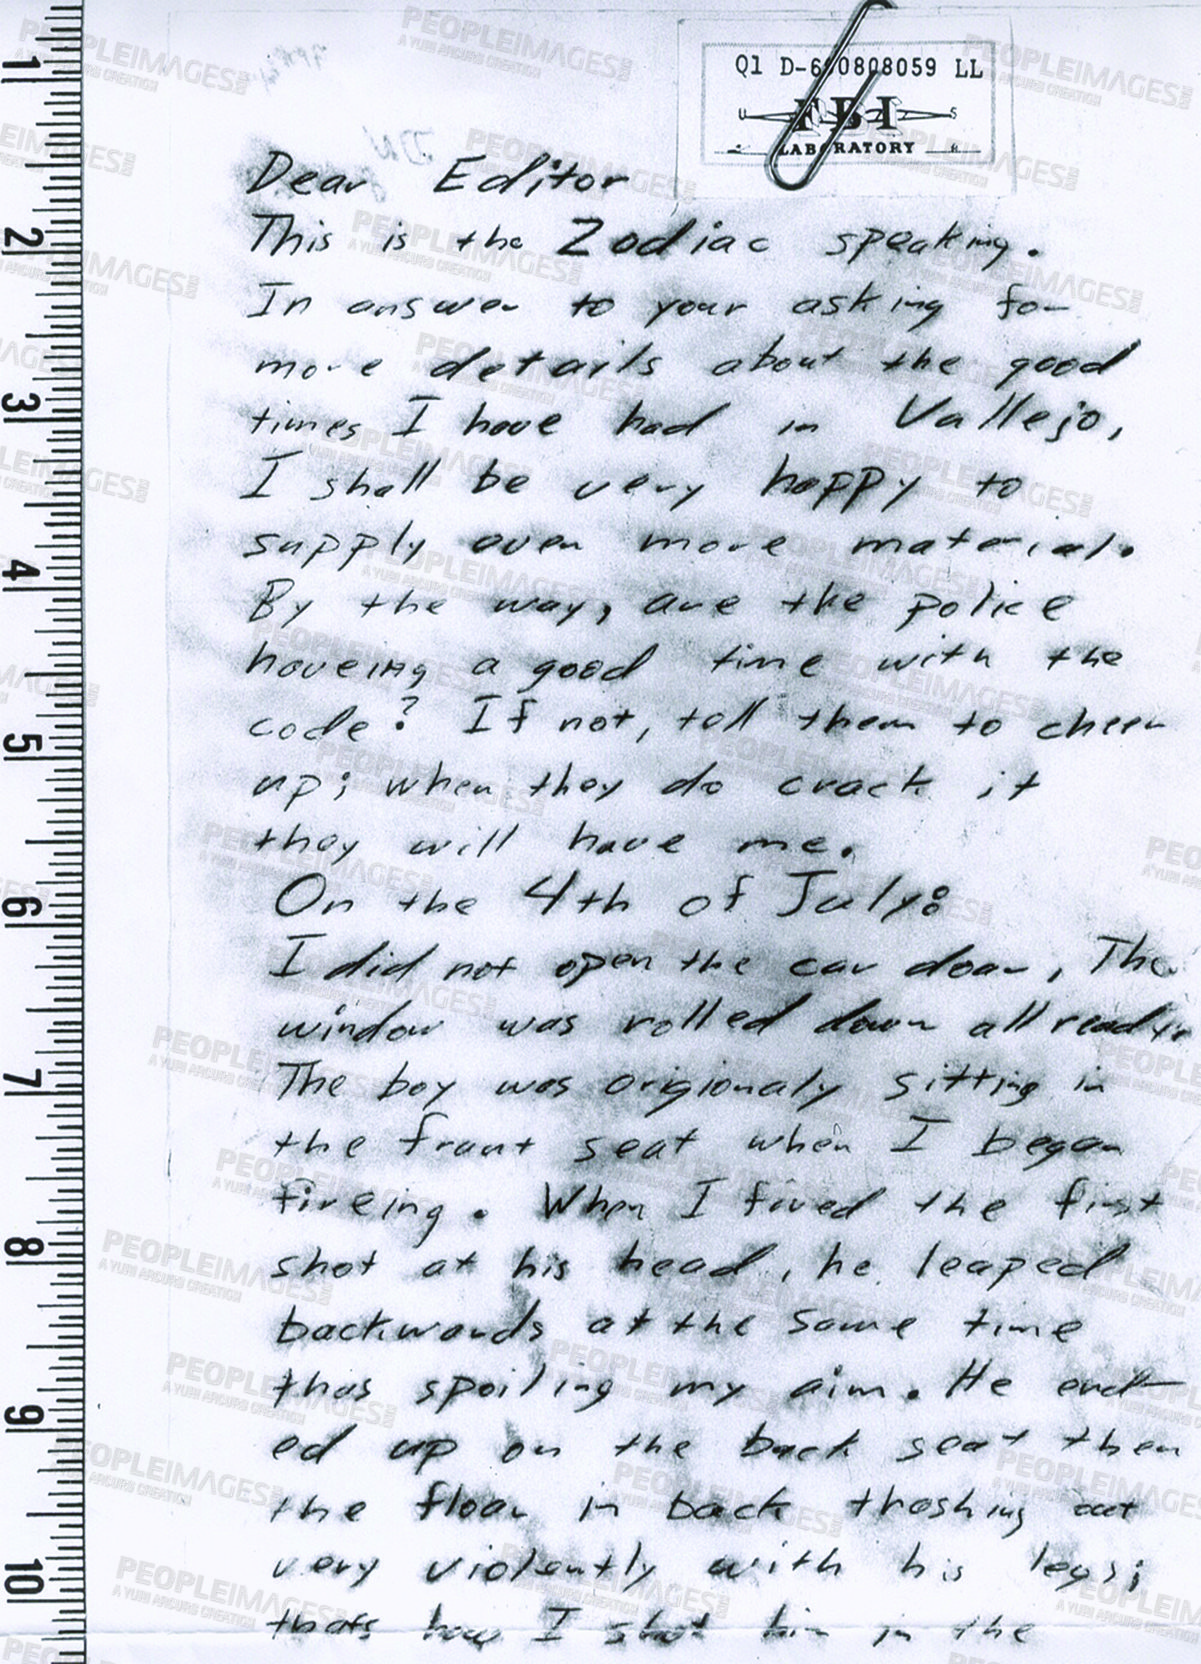 Q1 D-690808059 LL
U S
FBI
LABORATORY
Dear Editor
This is the Zodiac speaking.
In answer to your asking for
more details about the good
times I have had in Vallejo,
I shall be very happy to
supply even more material.
By the way, are the police
haveing a good time with the
code? If not, tell them to cheer
up; when they do crack it
they will have me.
On the 4th of July:
I did not open the car door, The
window was rolled down all ready.
The boy was origionaly sitting in
the frunt seat when I began
fireing. When I fired the first
shot at his head, he leaped
backwards at the same time
thus spoiling my aim. He end-
ed up on the back seat then
the floor in back thashing out
very violently with his legs;
thats how I shot him in the
1
2
3
4
5
6
7
8
9
10
PEOPLEIMAGES
A YURI ARCURS CREATION